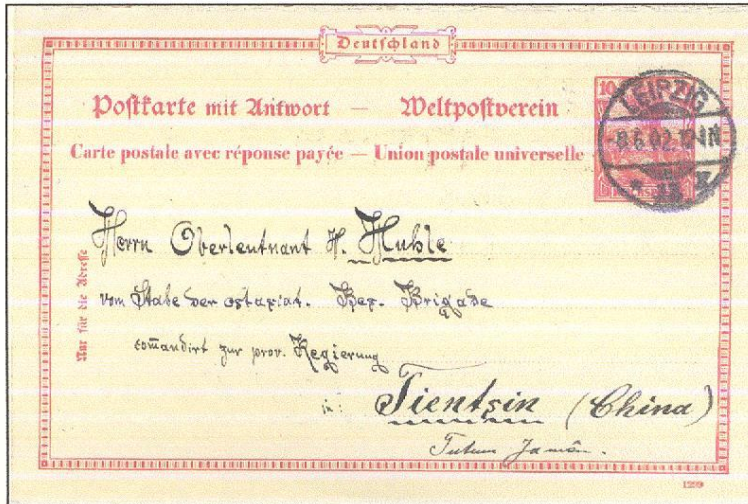 Deutschland
Postkarte mit Antwort — Weltpostverein
Carte postale avec réponse payée — Union postale universelle
10
LEIPZIG
8.6.02
* 13
Nur für die Adresse
Herrn Oberleutnant H. Muhle
vom Stabe der ostasiat. Bes. Brigade
comandirt zur prov. Regierung
in: Tientsin (China)
129